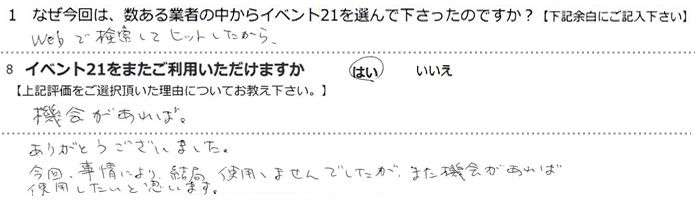 1 なぜ今回は、数ある業者の中からイベント21を選んで下さったのですか？【下記余白にご記入下さい】
Webで検索してヒットしたから、
8 イベント21をまたご利用いただけますか はい いいえ
【上記評価をご選択頂いた理由についてお教え下さい。】
機会があれば。
ありがとうございました。
今回、事情により、結局、使用しませんでしたが、また機会があれば
使用したいと思います。